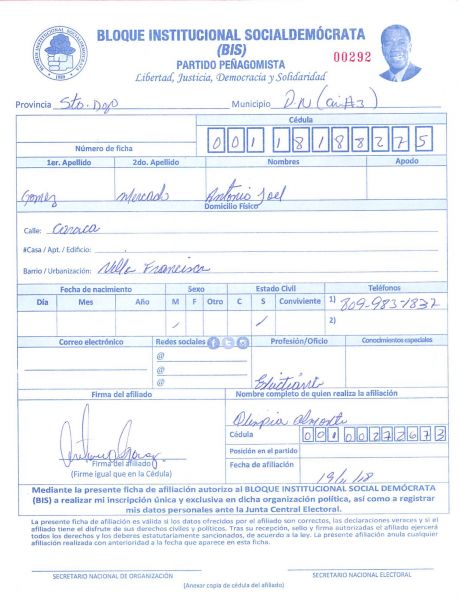 BLOQUE INSTITUCIONAL SOCIALDEMÓCRATA
(BIS)
PARTIDO PEÑAGOMISTA
Libertad, Justicia, Democracia y Solidaridad
00292
Provincia Sto. Dgo Municipio D.N
Cédula
Número de ficha 001 1818827 5
1er. Apellido 2do. Apellido Nombres Apodo
Gomez Antonio Joel
Domicilio Físico
Calle: Caraca
#Casa / Apt. / Edificio:
Barrio / Urbanización: Villa Francisca
Fecha de nacimiento Sexo Estado Civil Teléfonos
Día Mes Año M F Otro C S Conviviente 1) 809-983-1837
/ / 2)
Correo electrónico Redes sociales Profesión/Oficio Conocimientos especiales
@
@
@ Estudiante
Firma del afiliado Nombre completo de quien realiza la afiliación
Olimpia Almonte
Cédula 001 0027267 3
Posición en el partido
Firma del afiliado
(Firme igual que en la Cédula)
Fecha de afiliación
Mediante la presente ficha de afiliación autorizo al BLOQUE INSTITUCIONAL SOCIAL DEMÓCRATA
(BIS) a realizar mi inscripción única y exclusiva en dicha organización política, así como a registrar
mis datos personales ante la Junta Central Electoral.
La presente ficha de afiliación es válida si los datos ofrecidos por el afiliado son correctos, las declaraciones veraces y si el
afiliado tiene el disfrute de sus derechos civiles y políticos. Tras su recepción, sello y firma autorizadas el afiliado ejercerá
todos los derechos y los deberes estatutariamente sancionados, de acuerdo a la ley. La presente afiliación anula cualquier
afiliación realizada con anterioridad a la fecha que aparece en esta ficha.
SECRETARIO NACIONAL DE ORGANIZACIÓN SECRETARIO NACIONAL ELECTORAL
(Anexar copia de cédula del afiliado)